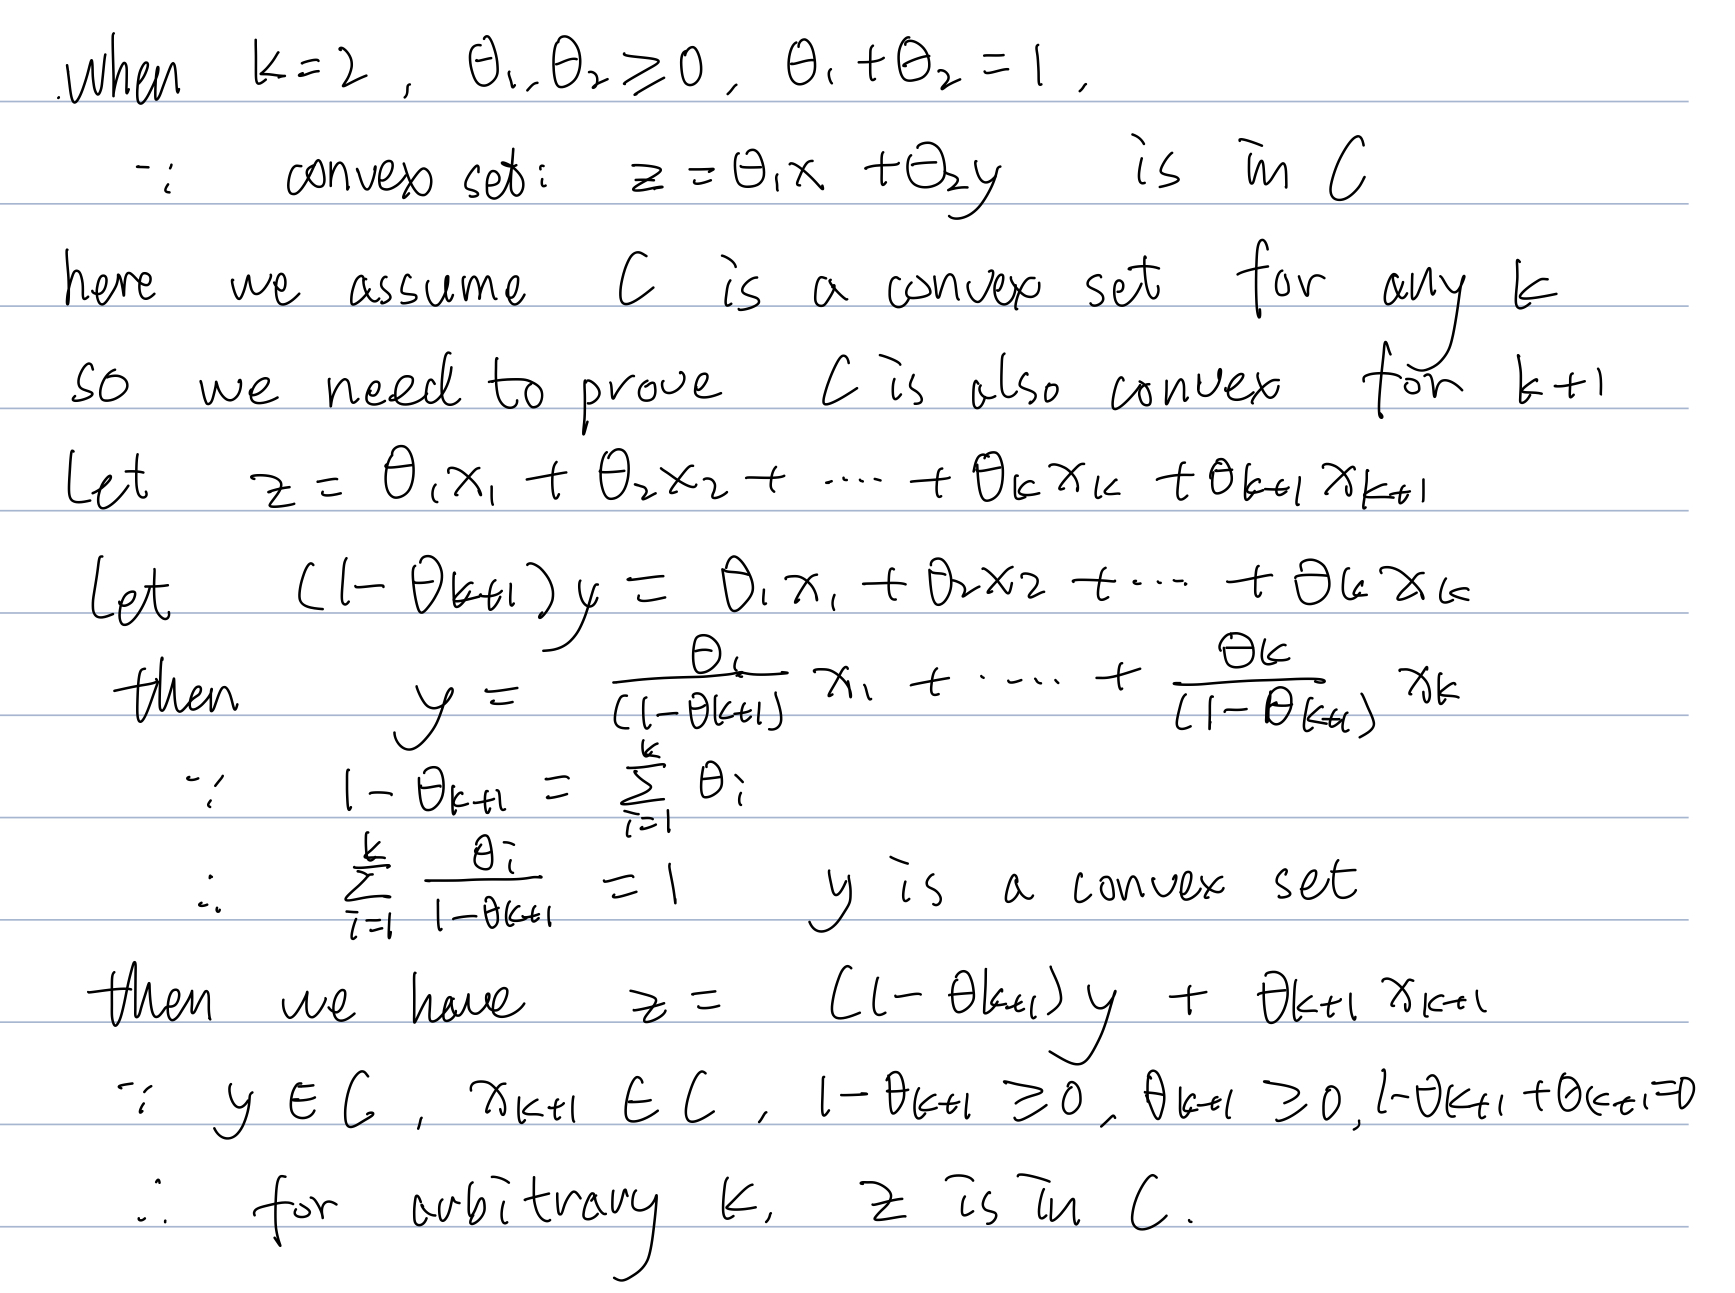 when k=2, θ₁,θ₂⩾0, θ₁+θ₂=1,
∵ convex set: z=θ₁x+θ₂y is in C
here we assume C is a convex set for any k
so we need to prove C is also convex for k+1
Let z = θ₁x₁ + θ₂x₂ + ···· + θₖxₖ + θₖ₊₁xₖ₊₁
Let (1-θₖ₊₁)y = θ₁x₁ + θ₂x₂ + ··· + θₖxₖ
then y = θ₁/(1-θₖ₊₁) x₁ + ····· + θₖ/(1-θₖ₊₁) xₖ
∵ 1-θₖ₊₁ = ∑_{i=1}^{k} θᵢ
∴ ∑_{i=1}^{k} θᵢ/(1-θₖ₊₁) = 1 y is a convex set
then we have z = (1-θₖ₊₁)y + θₖ₊₁xₖ₊₁
∵ y∈C, xₖ₊₁∈C, 1-θₖ₊₁⩾0, θₖ₊₁⩾0, 1-θₖ₊₁+θₖ₊₁=0
∴ for arbitrary k, z is in C.